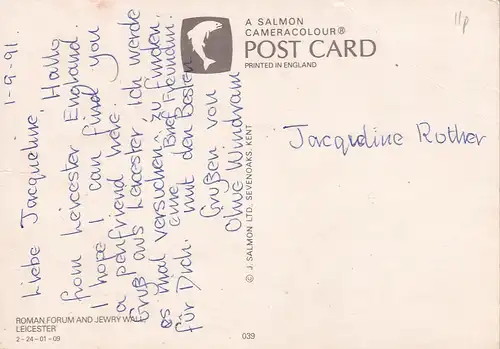 1-9-91.
Liebe Jacqueline, Hallo
from Leicester England.
I hope I can find you
a penfriend here.
Gruß aus Leicester Ich werde
es mal versuchen zu finden
für Dich. eine Brief Freundin.
mit den Besten
Grüßen von
A SALMON
CAMERACOLOUR®
POST CARD
PRINTED IN ENGLAND
11p
Jacqueline Rother
© J. SALMON LTD., SEVENOAKS, KENT
ROMAN FORUM AND JEWRY WALL
LEICESTER
2-24-01-09
039